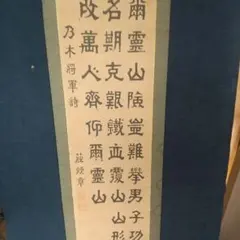 爾靈山險豈難攀男子功
名期克艱鐵血覆山山形
改萬人齊仰爾靈山
乃木將軍詩